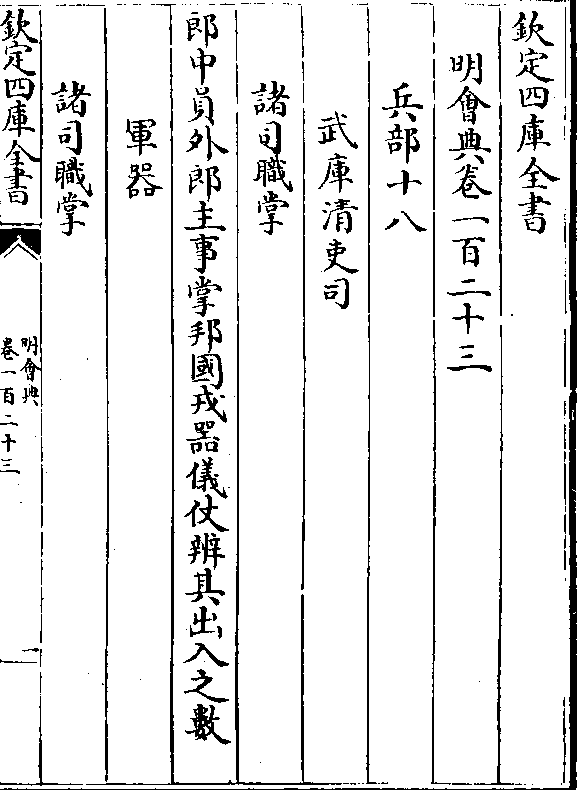 欽定四庫全書
明會典卷一百二十三
兵部十八
武庫清吏司
諸司職掌
郎中員外郎主事掌邦國戎器儀仗辨其出入之數
軍器
諸司職掌
欽定四庫全書
明會典
卷一百二十三
一